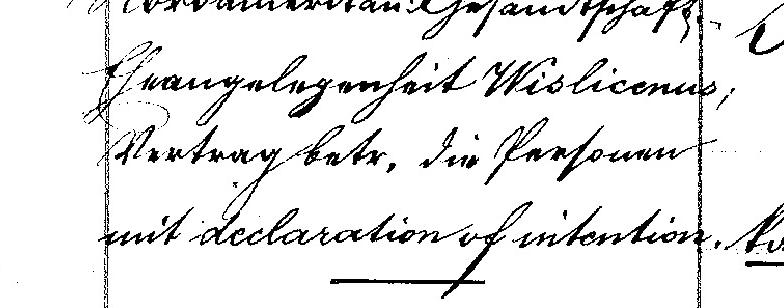 Nordamerikan. Gesandtschaft.
Eheangelegenheit Wislicenus,
Vertrag betr. die Personen
mit declaration of intention.